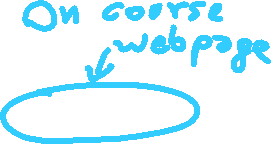 On course
webpage